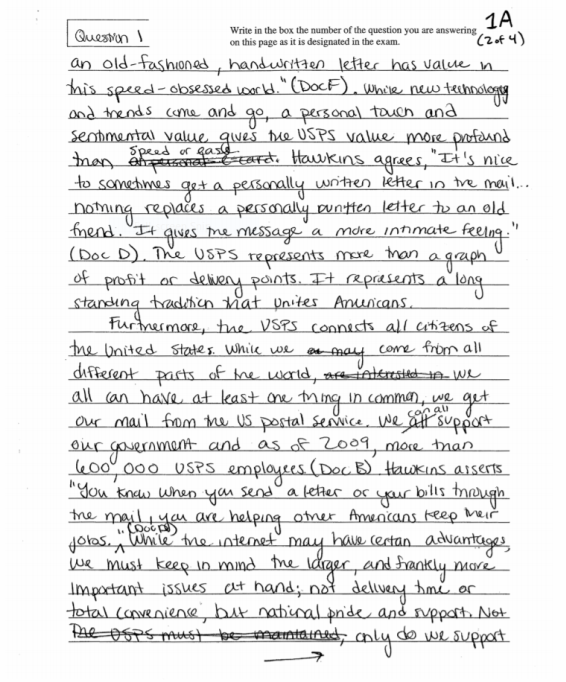 Question 1
Write in the box the number of the question you are answering
on this page as it is designated in the exam.
1A
(2 of 4)
an old-fashioned, handwritten letter has value in
this speed-obsessed world." (Doc F). While new technology
and trends come and go, a personal touch and
sentimental value gives the USPS value more profound
speed or ease
than. Hawkins agrees, "It's nice
to sometimes get a personally written letter in the mail...
nothing replaces a personally written letter to an old
friend. It gives the message a more intimate feeling."
(Doc D). The USPS represents more than a graph
of profit or delivery points. It represents a long
standing tradition that unites Americans.
Furthermore, the USPS connects all citizens of
the United States. While we may come from all
different parts of the world, are interested in we
all can have at least one thing in common, we get
our mail from the US postal service. We all support
can all
our government and as of 2009, more than
600,000 USPS employees (Doc B). Hawkins asserts
"You know when you send a letter or your bills through
the mail, you are helping other Americans keep their
jobs." (Doc D) While the internet may have certan advantages,
we must keep in mind the larger, and frankly more
important issues at hand; not delivery time or
total convenience, but national pride and support. Not
The USPS must be maintained, only do we support